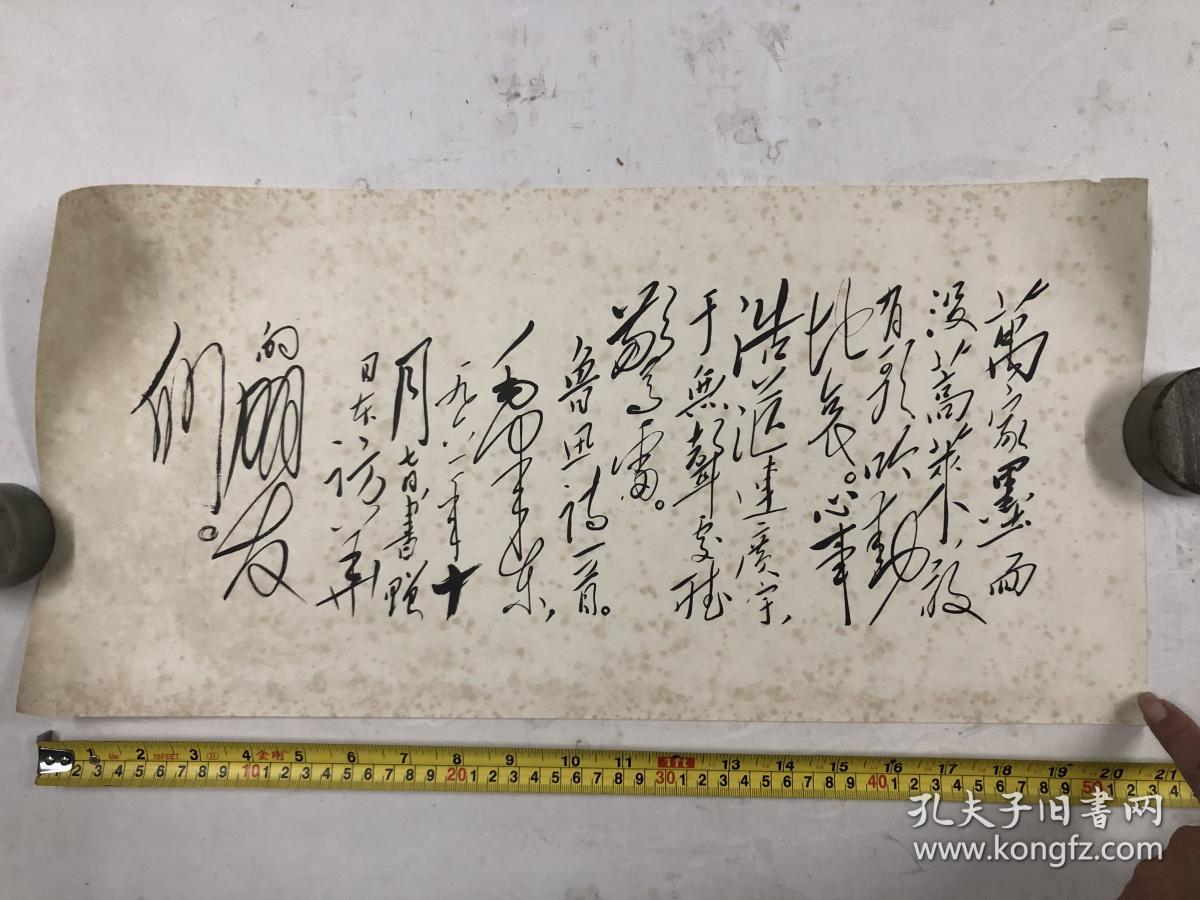 萬家墨面
没蒿萊,敢
有歌吟動
地哀。心事
浩茫連廣宇,
于無聲處聽
驚雷。
魯迅詩一首。
毛澤東,
一九六一年十
月七日書贈
日本訪華
的朋友
们。
孔夫子旧书网
www.kongfz.com